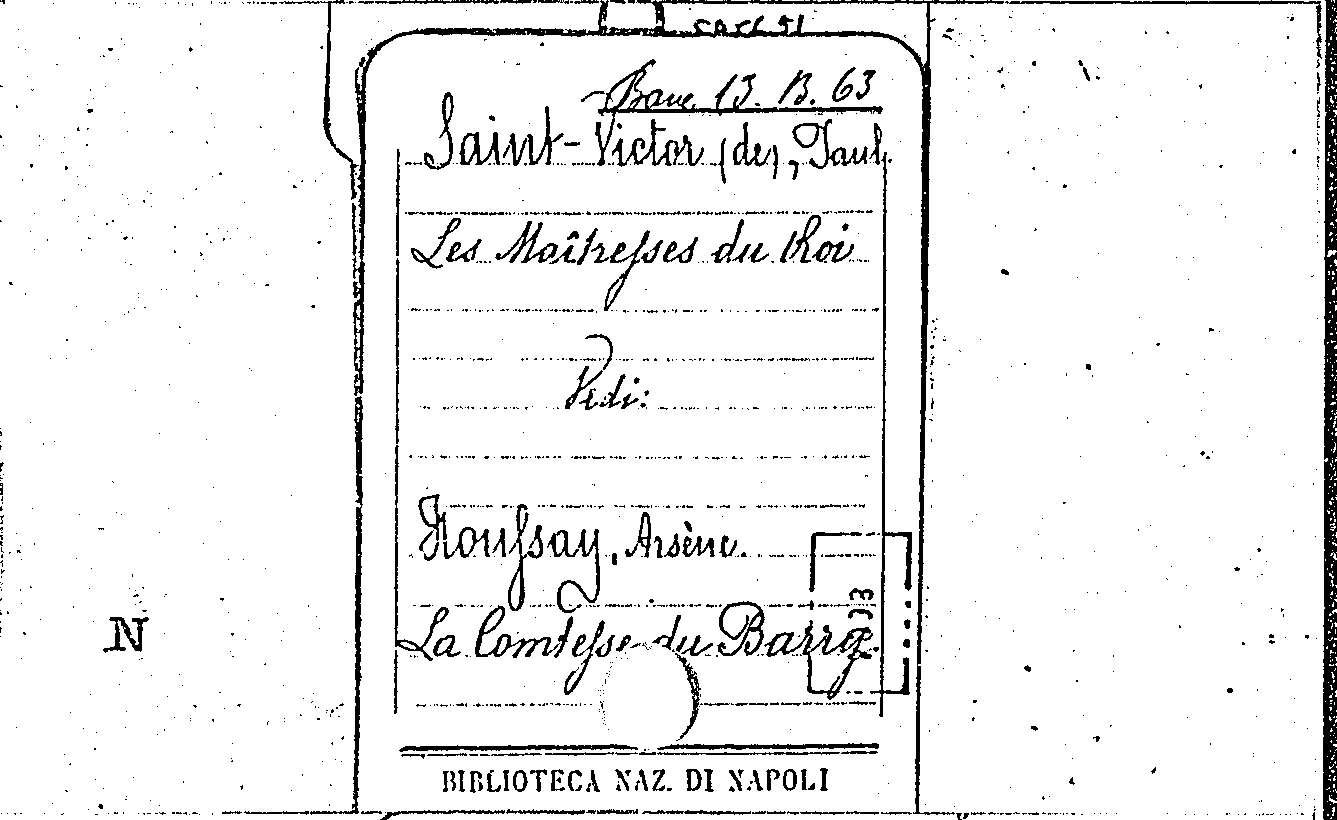 Banc. 13. B. 63
Saint-Victor (de), Paul.
Les Maîtresses du Roi
Vedi:
Houssay, Arsène.
La Comtesse du Barry.
N
BIBLIOTECA NAZ. DI NAPOLI